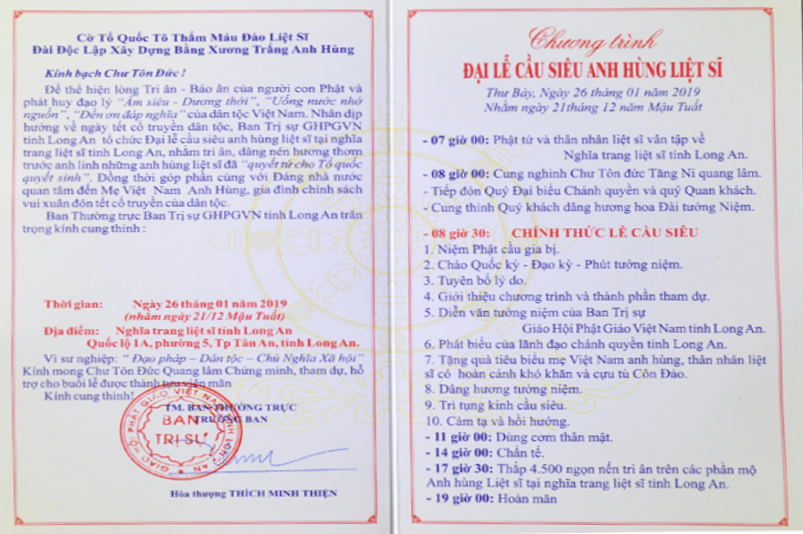 Cờ Tổ Quốc Tô Thắm Máu Đào Liệt Sĩ
Đài Độc Lập Xây Dựng Bằng Xương Trắng Anh Hùng
Kính bạch Chư Tôn Đức !
Để thể hiện lòng Tri ân - Báo ân của người con Phật và
phát huy đạo lý "Âm siêu - Dương thới", "Uống nước nhớ
nguồn", "Đền ơn đáp nghĩa" của dân tộc Việt Nam. Nhân dịp
hướng về ngày tết cổ truyền dân tộc, Ban Trị sự GHPGVN
tỉnh Long An tổ chức Đại lễ cầu siêu anh hùng liệt sĩ tại nghĩa
trang liệt sĩ tỉnh Long An, nhằm tri ân, dâng nén hương thơm
trước anh linh những anh hùng liệt sĩ đã "quyết tử cho Tổ quốc
quyết sinh". Đồng thời góp phần cùng với Đảng nhà nước
quan tâm đến Mẹ Việt Nam Anh Hùng, gia đình chính sách
vui xuân đón tết cổ truyền của dân tộc.
Ban Thường trực Ban Trị sự GHPGVN tỉnh Long An trân
trọng kính cung thỉnh :
Thời gian: Ngày 26 tháng 01 năm 2019
(nhằm ngày 21/12 Mậu Tuất)
Địa điểm: Nghĩa trang liệt sĩ tỉnh Long An
Quốc lộ 1A, phường 5, Tp Tân An, tỉnh Long An.
Vì sự nghiệp: "Đạo pháp - Dân tộc - Chủ Nghĩa Xã hội"
Kính mong Chư Tôn Đức Quang lâm Chứng minh, tham dự, hỗ
trợ cho buổi lễ được thành tựu viên mãn
Kính cung thỉnh!
TM. BAN THƯỜNG TRỰC
TRƯỞNG BAN
GIÁO HỘI PHẬT GIÁO VIỆT NAM TỈNH LONG AN
BAN
TRỊ SỰ
Hòa thượng THÍCH MINH THIỆN
Chương trình
ĐẠI LỄ CẦU SIÊU ANH HÙNG LIỆT SĨ
Thứ Bảy, Ngày 26 tháng 01 năm 2019
Nhằm ngày 21tháng 12 năm Mậu Tuất
- 07 giờ 00: Phật tử và thân nhân liệt sĩ vân tập về
Nghĩa trang liệt sĩ tỉnh Long An.
- 08 giờ 00: Cung nghinh Chư Tôn đức Tăng Ni quang lâm.
- Tiếp đón Quý Đại biểu Chánh quyền và quý Quan khách.
- Cung thỉnh Quý khách dâng hương hoa Đài tưởng Niệm.
- 08 giờ 30: CHÍNH THỨC LỄ CẦU SIÊU
1. Niệm Phật cầu gia bị.
2. Chào Quốc kỳ - Đạo kỳ - Phút tưởng niệm.
3. Tuyên bố lý do.
4. Giới thiệu chương trình và thành phần tham dự.
5. Diễn văn tưởng niệm của Ban Trị sự
Giáo Hội Phật Giáo Việt Nam tỉnh Long An.
6. Phát biểu của lãnh đạo chánh quyền tỉnh Long An.
7. Tặng quà tiêu biểu mẹ Việt Nam anh hùng, thân nhân liệt
sĩ có hoàn cảnh khó khăn và cựu tù Côn Đảo.
8. Dâng hương tưởng niệm.
9. Trì tụng kinh cầu siêu.
10. Cảm tạ và hồi hướng.
- 11 giờ 00: Dùng cơm thân mật.
- 14 giờ 00: Chẩn tế.
- 17 giờ 30: Thắp 4.500 ngọn nến tri ân trên các phần mộ
Anh hùng Liệt sĩ tại nghĩa trang liệt sĩ tỉnh Long An.
- 19 giờ 00: Hoàn mãn